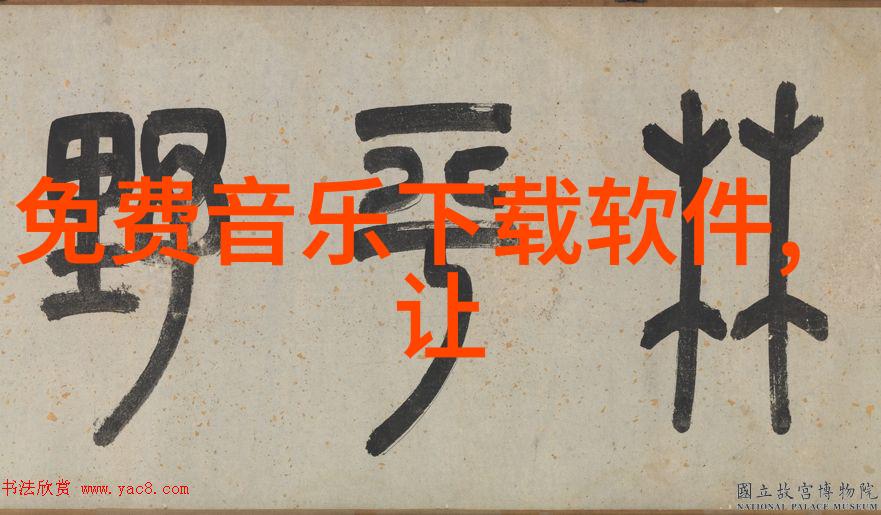 林平野
免费音乐下载软件,
让
书法欣赏 www.yac8.com
國立故宮博物院
NATIONAL PALACE MUSEUM